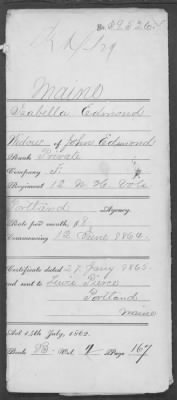 No. 39526
Maine
Isabella Edmond
Widow of John Edmond
Rank Private
Company K
Regiment 12 N. H. Vols
Portland Agency.
Rate per month, $8
Commencing 12 June 1864.
Certificate dated 27 Jany 1865.
and sent to Lewis Pierce
Portland
Maine
Act 14th July, 1862.
Book Vol. Page 167